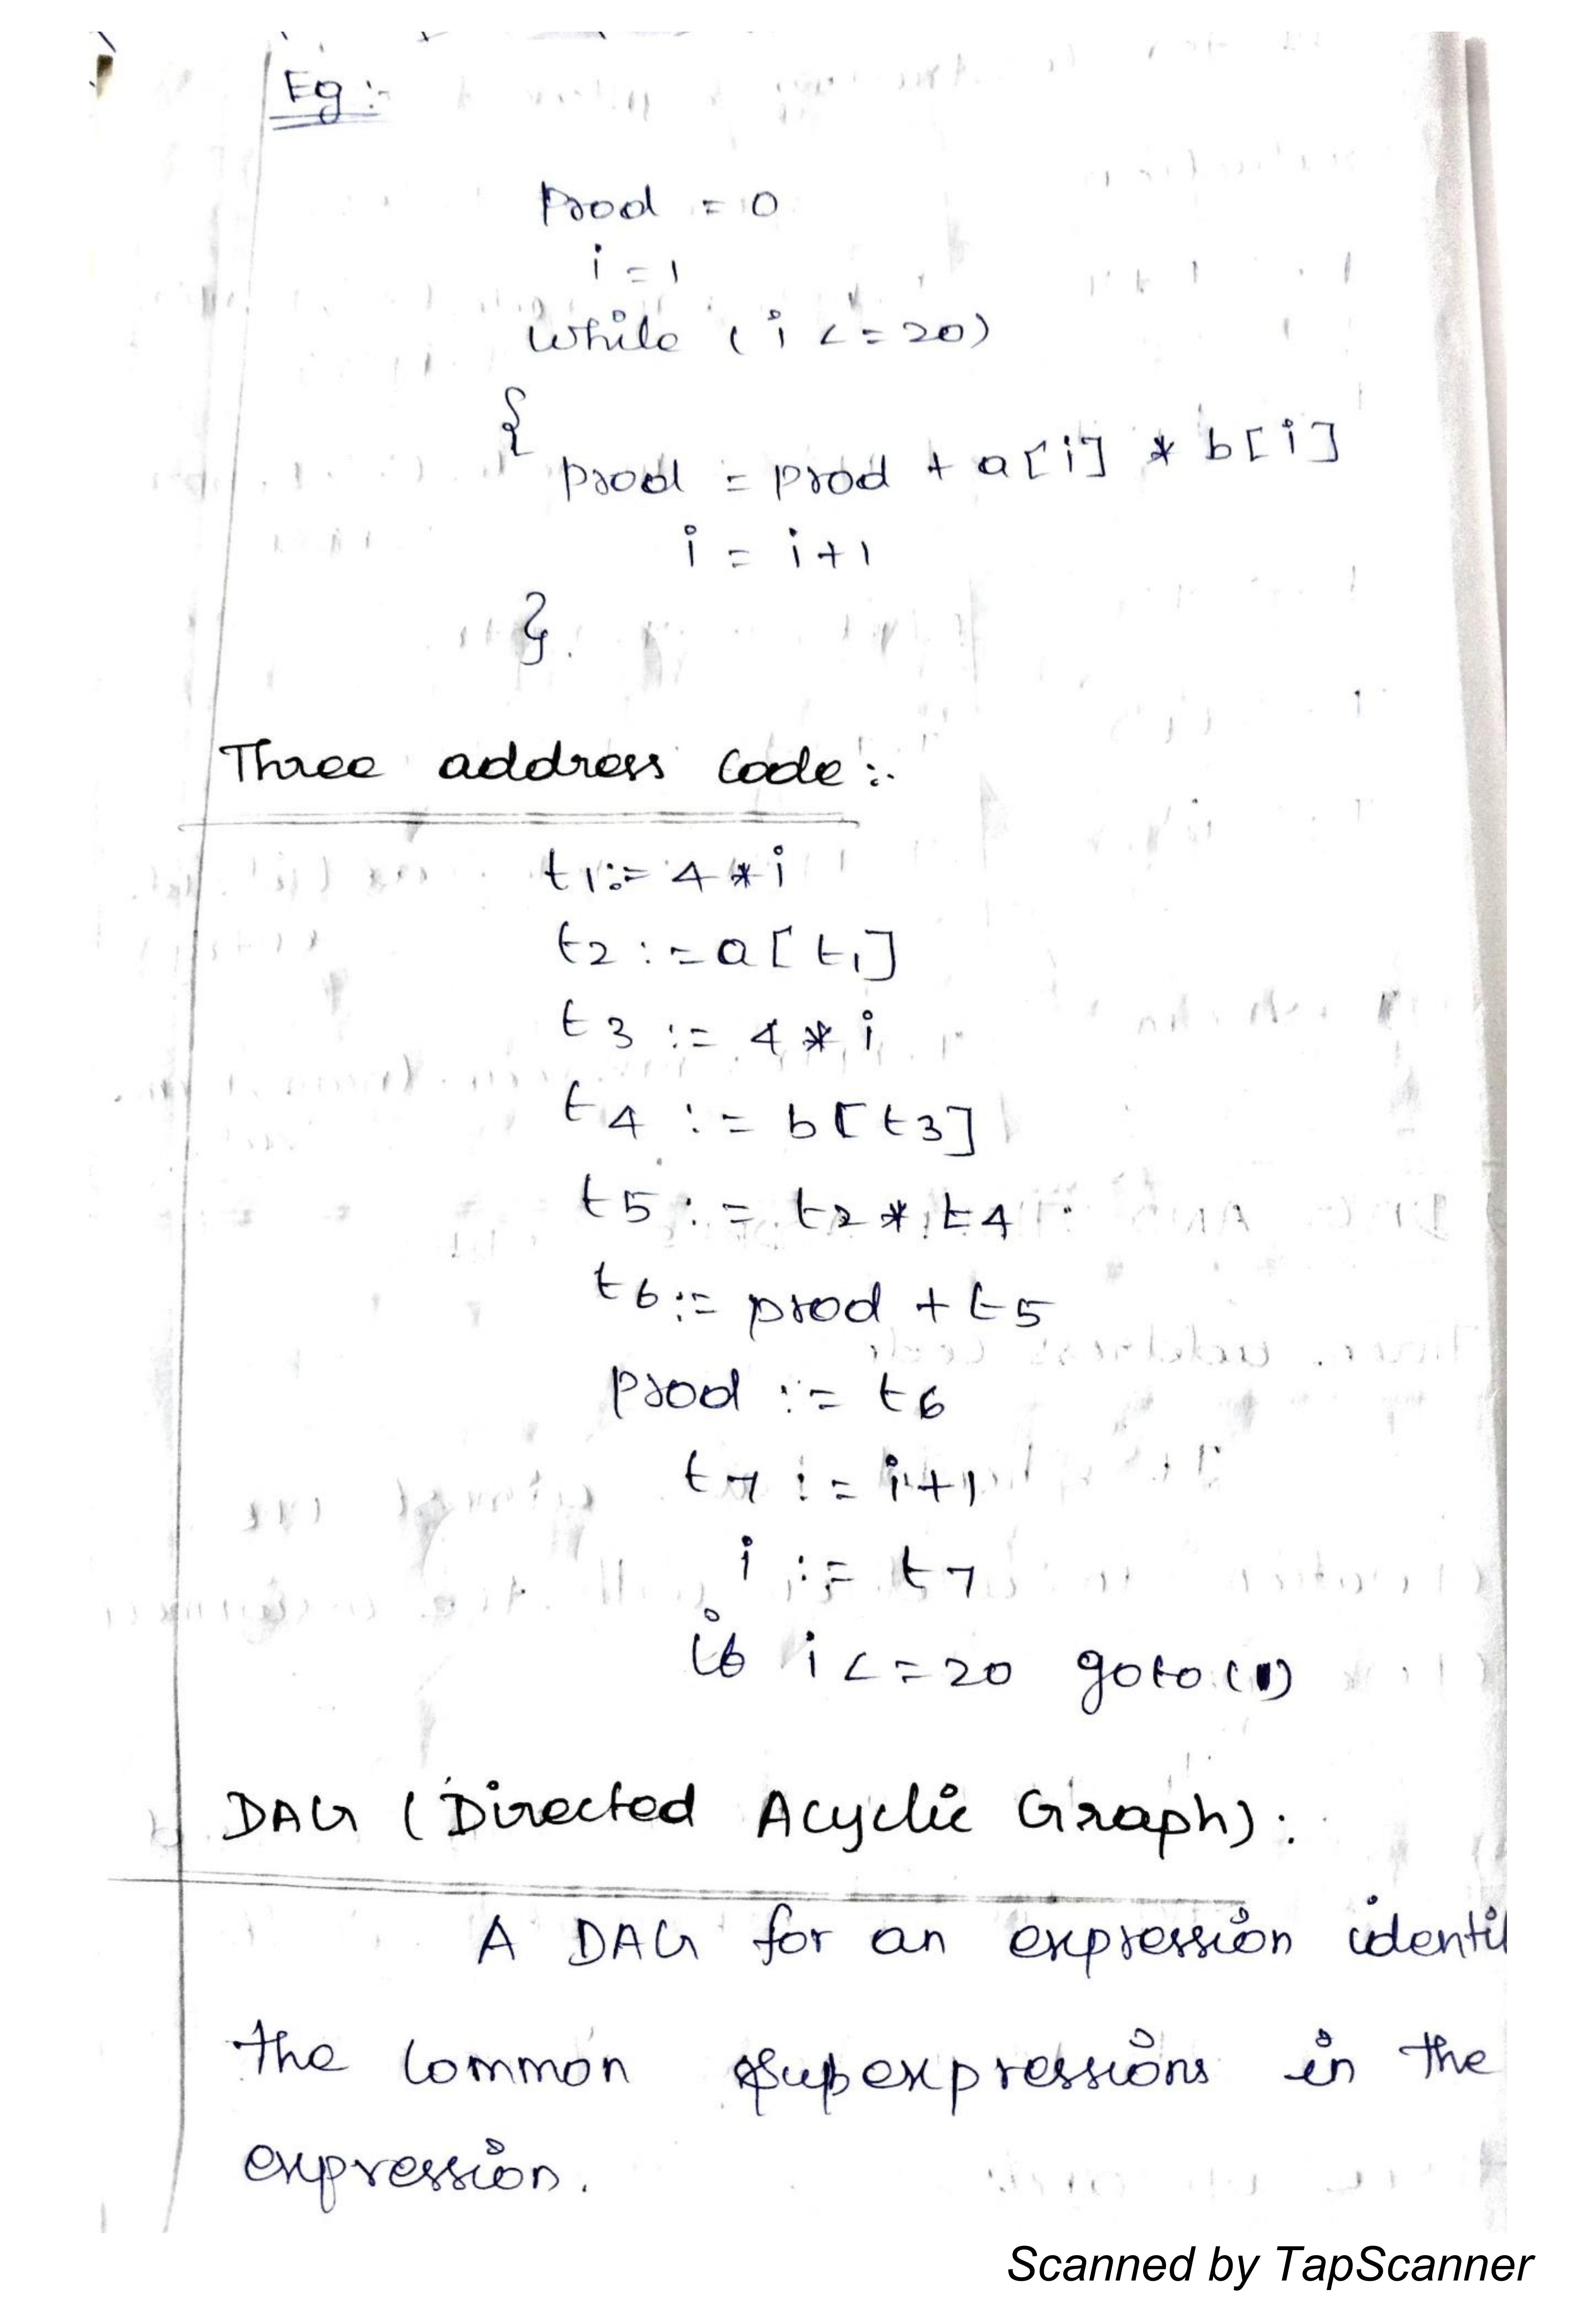 Eg :-
prod = 0
i = 1
while ( i <= 20)
{
prod = prod + a[i] * b[i]
i = i+1
}.
Three address code :.
t1:= 4 * i
t2 := a[t1]
t3 := 4 * i
t4 := b[t3]
t5 := t2 * t4
t6 := prod + t5
prod := t6
t7 := i+1
i := t7
if i <= 20 goto (1)
DAG (Directed Acyclic Graph) :.
A DAG for an expression identi
the common subexpressions in the
expression.
Scanned by TapScanner